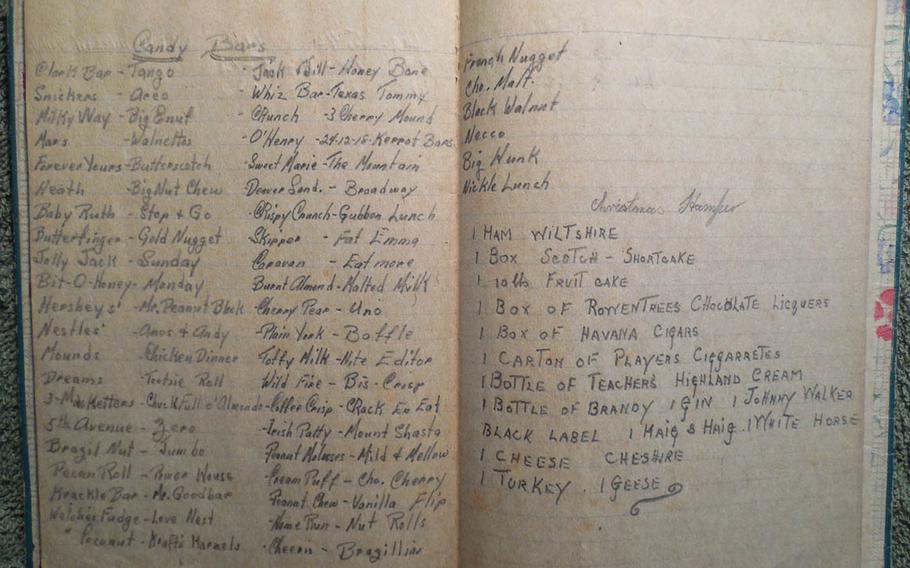 Candy Bars
Clark Bar - Tango - Jack & Jill - Honey Bone
Snickers - Areo - Whiz Bar - Texas Tommy
Milky Way - Big Enuf - Crunch - 3 Cherry Mound
Mars - Walnettos - O'Henry - 24-12-16- Bars
Forever Yours - Butterscotch Sweet Marie - The Mountain
Heath - Big Nut Chew Denver Sand. - Broadway
Baby Ruth - Stop & Go - Crispy Crunch - Gubbon Lunch
Butterfinger - Gold Nugget Skipper - Fat Emma
Jolly Jack - Sunday Caravan - Eatmore
Bit-O-Honey - Monday Burnt Almond - Malted Milk
Hersheys' - Mr. Peanut Block - Cherry Pear - Uno
Nestles' - Amos & Andy - Plain York - Boffle
Mounds - Chicken Dinner Toffy Milk - Nite Editor
Dreams - Tootsie Roll Wild Fire - Bis-Crisp
3-Musketters - Chuck Full o' Almonds - Coffee Crisp - CRack Er Eat
5th Avenue - Zero - Irish Patty - Mount Shasta
Brazil Nut - Jumbo Peanut Molasses - Mild & Mellow
Pecan Roll - Power House - Cream Puff - Cho. Cherry
Krackle Bar - Mr. Goodbar Peanut Chew - Vanilla Flip
Welches Fudge - Love Nest - Home Run - Nut Rolls
" Coconut - Krafts Karmels - Cheern - Brazillian
French Nugget
Cho. Malt
Black Walnut
Necco
Big Hunk
Nickle Lunch
Christmas Hamper
1 HAM WILTSHIRE
1 BOX SCOTCH - SHORTCAKE
1 10lb FRUIT CAKE
1 BOX OF ROWENTREES CHOCOLATE LICQUERS
1 BOX OF HAVANA CIGARS
1 CARTON OF PLAYERS CIGGARRETES
1 BOTTLE OF TEACHERS HIGHLAND CREAM
1 BOTTLE OF BRANDY 1 GIN 1 JOHNNY WALKER
BLACK LABEL 1 HAIG & HAIG . 1 WHITE HORSE
1 CHEESE CHESHIRE
1 TURKEY . 1 GEESE